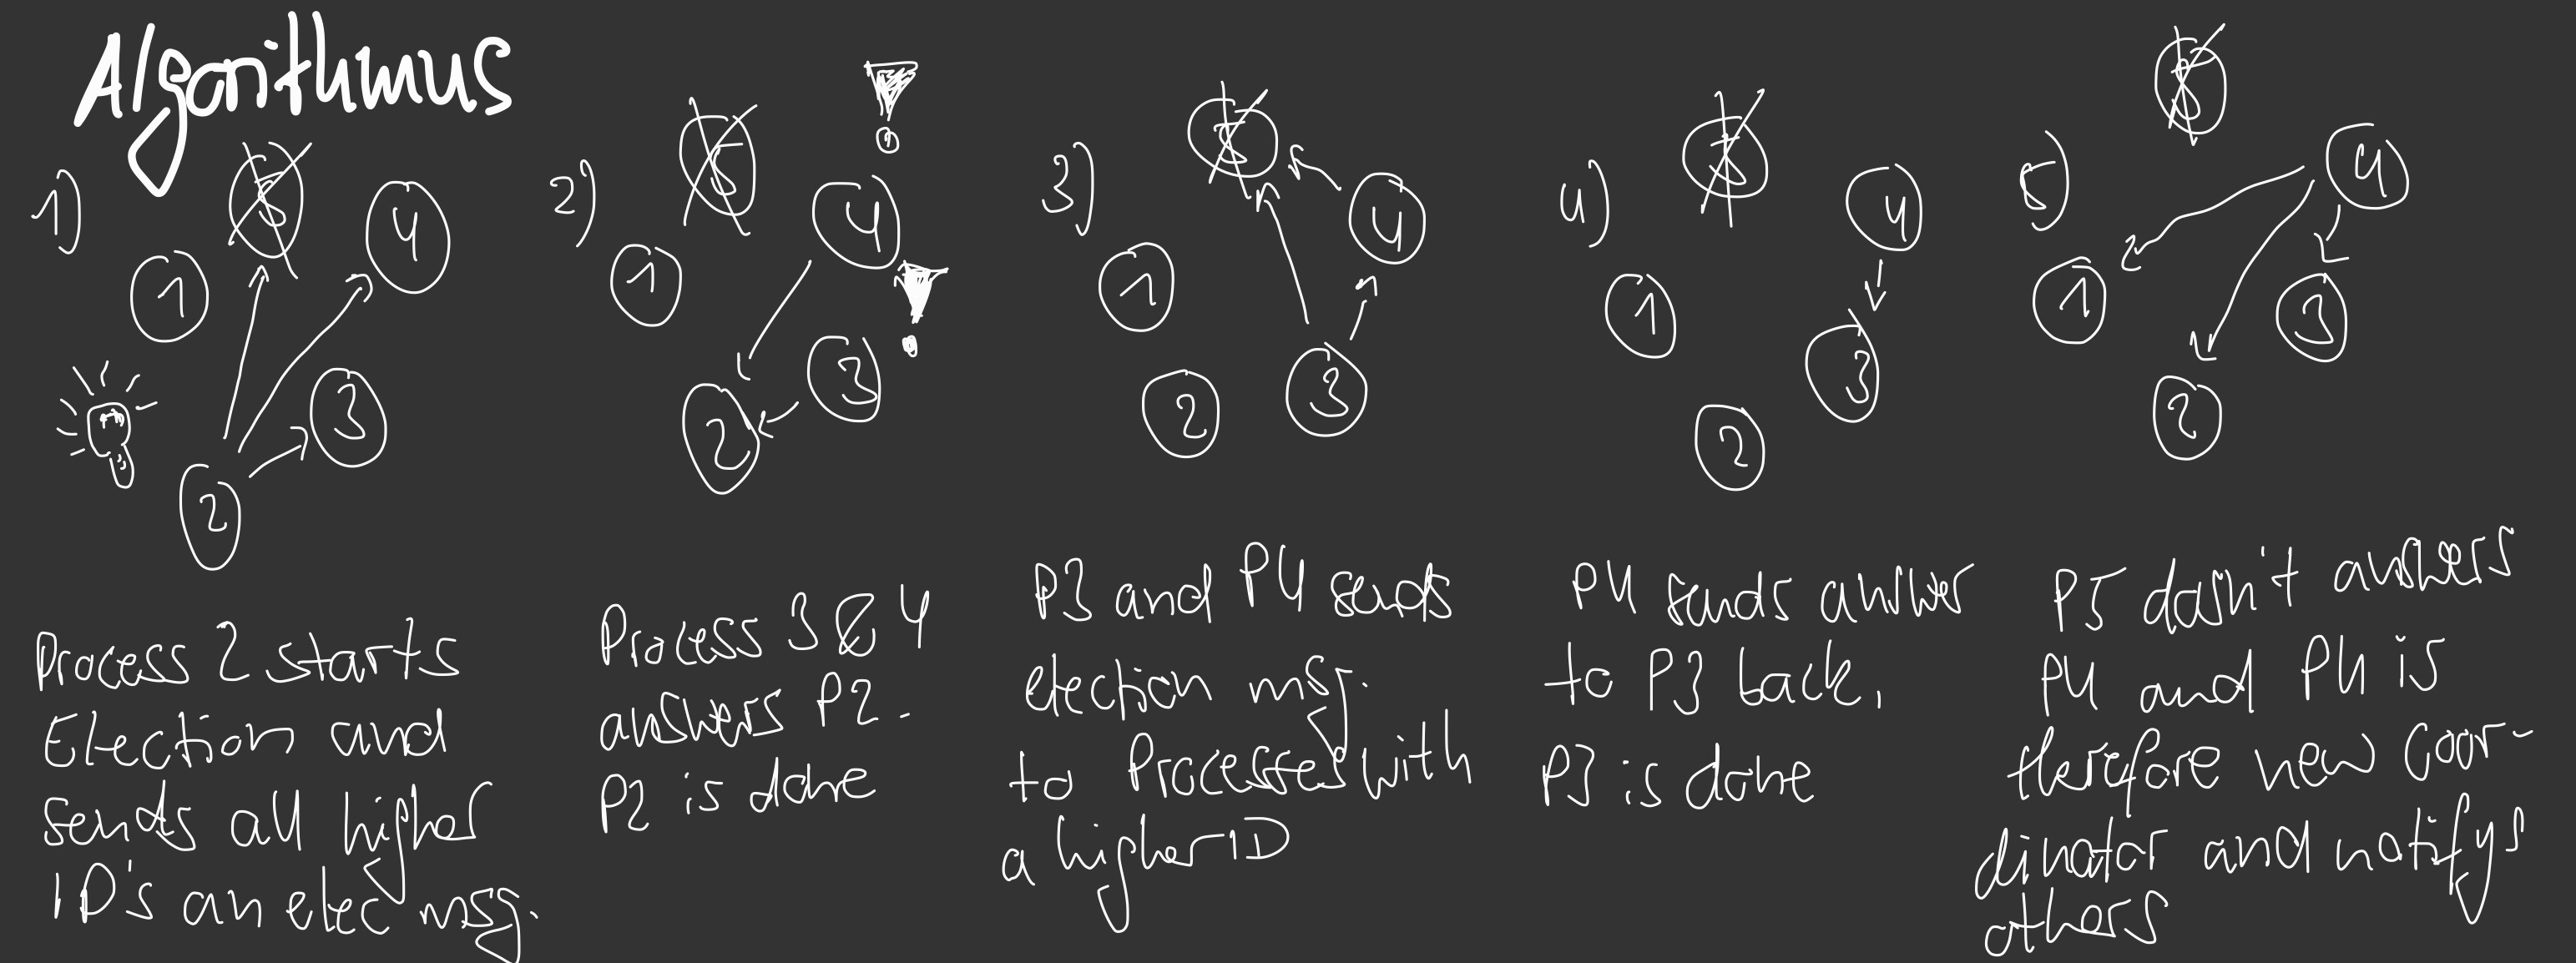 Algorithmus
1)
5
4
1
3
2
Process 2 starts
Election and
sends all higher
ID's an elec msg.
2)
5
4
1
3
2
Process 3 & 4
answers P2.
P2 is done
3)
5
4
1
3
2
P3 and P4 sends
election msg.
to Processes with
a higher ID
4)
5
4
1
3
2
P4 sends answer
to P3 back,
P3 is done
5)
5
4
1
3
2
P5 dosn't answers
P4 and P4 is
therefore new Coor-
dinator and notifys
others